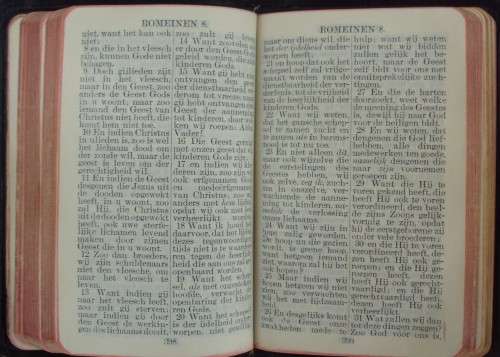 ROMEINEN 8.
niet, want het kan ook
niet;
8 en die in het vleesch
zijn, kunnen Gode niet
behagen.
9 Doch gijlieden zijt
niet in het vleesch,
maar in den Geest, zoo
anders de Geest Gods
in u woont; maar zoo
iemand den Geest van
Christus niet heeft, die
komt hem niet toe.
10 En indien Christus
in ulieden is, zoo is wel
het lichaam dood om
der zonde wil, maar de
geest is leven om der
gerechtigheid wil.
11 En indien de Geest
desgenen die Jezus uit
de dooden opgewekt
heeft, in u woont, zoo
zal Hij, die Christus
uit de dooden opgewekt
heeft, ook uwe sterfe-
lijke lichamen levend
maken door zijnen
Geest die in u woont.
12 Zoo dan, broeders,
wij zijn schuldenaars
niet den vleesche, om
naar het vleesch te
leven.
13 Want indien gij
naar het vleesch leeft,
zoo zult gij sterven;
maar indien gij door
den Geest de werkin-
gen des lichaams doodt,
zoo zult gij leven.
14 Want zoovelen als
er door den Geest Gods
geleid worden, die zijn
kinderen Gods.
15 Want gij hebt niet
ontvangen den geest
der dienstbaarheid we-
derom tot vreeze; maar
gij hebt ontvangen den
Geest der aanneming
tot kinderen, door wel-
ken wij roepen: Abba,
Vader!
16 Die Geest getuigt
met onzen geest dat wij
kinderen Gods zijn.
17 en indien wij kin-
deren zijn, zoo zijn wij
ook erfgenamen,
erfgenamen
van Christus, zoo wij
anders met hem lijden,
opdat wij ook met hem
verheerlijkt worden.
18 Want ik houd het
daarvoor, dat het lijden
dezes tegenwoordigen
tijds niet is te waardee-
ren tegen de heerlijk-
heid die aan ons zal ge-
openbaard worden.
19 Want het schep-
sel, als met opgestoken
hoofde, verwacht de
openbaring der kinde-
ren Gods.
20 Want het schepsel
is der ijdelheid onder-
worpen, niet gewillig,
298
ROMEINEN 8.
maar om diens wil, die
het der ijdelheid onder-
worpen heeft;
21 op hoop dat ook het
schepsel zelf zal vrijge-
maakt worden van de
dienstbaarheid der ver-
derfenis, tot de vrijheid
van de heerlijkheid der
kinderen Gods.
22 Want wij weten,
dat het gansche schep-
sel te zamen zucht en
te zamen als in barens-
nood is tot nu toe.
23 En niet alleen dit,
maar ook wijzelve die
de eerstelingen des
Geestes hebben, wij
ook zelve, zeg ik, zuch-
ten in onszelve, ver-
wachtende de aanne-
ming tot kinderen, na-
melijk de verlossing
onzes lichaams.
24 Want wij zijn in
hope zalig geworden.
de hoop nu die gezien
wordt, is geene hoop;
want hetgeen iemand
ziet, waarom zal hij het
ook hopen?
25 Maar indien wij
hopen hetgeen wij niet
zien, zoo verwachten
wij het met lijdzaam-
heid.
26 En desgelijks komt
ook de Geest onze
zwakheden mede te
hulp; want wij weten
niet wat wij bidden
zullen gelijk het be-
hoort, maar de Geest
zelf bidt voor ons met
onuitsprekelijke zuch-
tingen.
27 En die de harten
doorzoekt, weet welke
de meening des Geestes
is, dewijl hij naar God
voor de heiligen bidt.
28 En wij weten, dat
dengenen die God lief-
hebben, alle dingen
medewerken ten goede,
namelijk dengenen die
naar zijn voornemen
geroepen zijn.
29 Want die Hij te
voren gekend heeft, die
heeft Hij ook te voren
verordineerd den beel-
de zijns Zoons gelijk-
vormig te zijn, opdat
hij de eerstgeborene zij
onder vele broederen;
30 en die Hij te voren
verordineerd heeft, de-
zen heeft Hij ook ge-
roepen; en die Hij ge-
roepen heeft, dezen
heeft Hij ook gerecht-
vaardigd; en die Hij
gerechtvaardigd heeft,
dezen heeft Hij ook
verheerlijkt.
31 Wat zullen wij dan
tot deze dingen zeggen?
Zoo God vóór ons is,
299